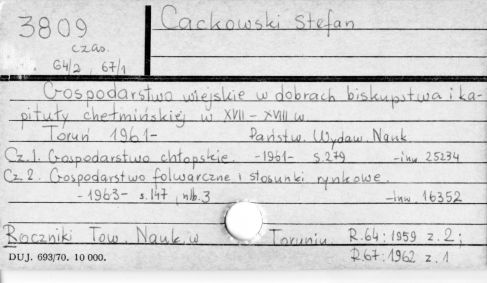 3809
czas.
64/2, 67/1
Cackowski Stefan
Gospodarstwo wiejskie w dobrach biskupstwa i ka-
pituły chełmińskiej w XVII - XVIII w.
Toruń 1961- Państw. Wydaw. Nauk
Cz. 1. Gospodarstwo chłopskie. -1961- s. 279 -inw. 25234
Cz. 2. Gospodarstwo folwarczne i stosunki rynkowe.
-1963- s. 147, nlb. 3 -inw. 16352
Roczniki Tow. Nauk. w Toruniu R. 64: 1959 z. 2;
R. 67: 1962 z. 1
DUJ. 693/70. 10 000.